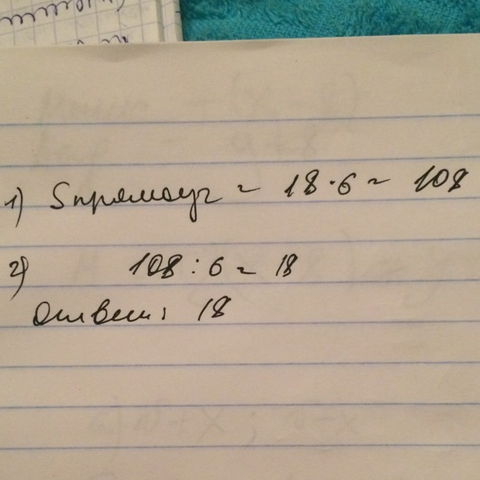 1) Sпрямоуг = 18·6 = 108
2) 108 : 6 = 18
Ответ: 18